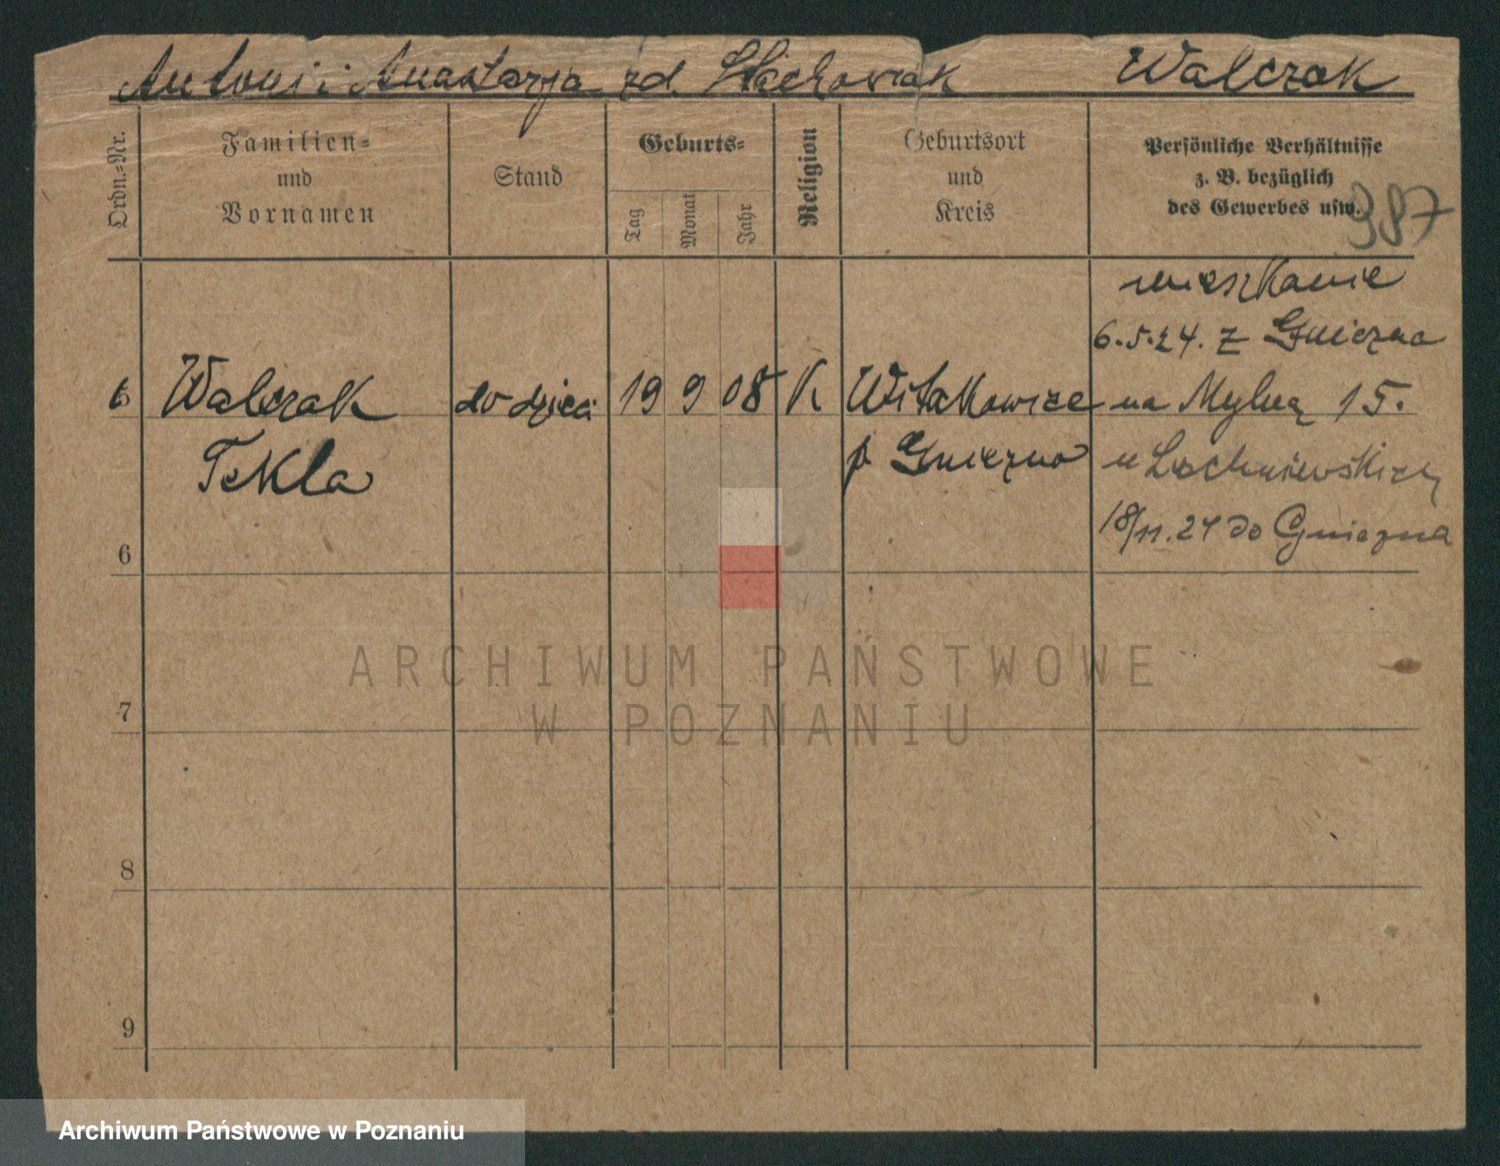 Antoni i Anastazja zd. Stachowiak Walczak
Ordn.-Nr.
Familien-
und
Vornamen
Stand
Geburts-
Tag
Monat
Jahr
Religion
Geburtsort
und
Kreis
Persönliche Verhältnisse
z. B. bezüglich
des Gewerbes usw.
387
mieszkanie
6.5.24. z Gniezna
Walczak do dzieci 19 9 08 K Witakowice na Mylną 15.
Tekla p Gniezno u
18/11.24 do Gniezna
6
7
8
9
ARCHIWUM PAŃSTWOWE
W POZNANIU
Archiwum Państwowe w Poznaniu